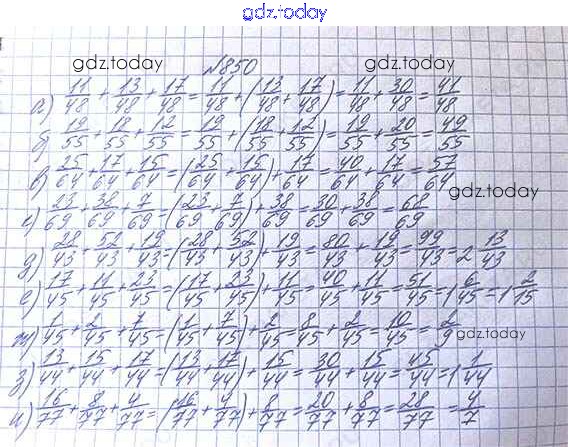 gdz.today
gdz.today gdz.today
№850
а) 11/48 + 13/48 + 17/48 = 11/48 + (13/48 + 17/48) = 11/48 + 30/48 = 41/48
б) 19/55 + 18/55 + 12/55 = 19/55 + (18/55 + 12/55) = 19/55 + 20/55 = 49/55
в) 25/64 + 17/64 + 15/64 = (25/64 + 15/64) + 17/64 = 40/64 + 17/64 = 57/64
gdz.today
г) 23/69 + 38/69 + 7/69 = (23/69 + 7/69) + 38/69 = 30/69 + 38/69 = 68/69
д) 28/43 + 52/43 + 19/43 = (28/43 + 52/43) + 19/43 = 80/43 + 19/43 = 99/43 = 2 13/43
е) 17/45 + 11/45 + 23/45 = (17/45 + 23/45) + 11/45 = 40/45 + 11/45 = 51/45 = 1 6/45 = 1 2/15
ж) 1/45 + 2/45 + 7/45 = (1/45 + 7/45) + 2/45 = 8/45 + 2/45 = 10/45 = 2/9
gdz.today
з) 13/44 + 15/44 + 17/44 = (13/44 + 17/44) + 15/44 = 30/44 + 15/44 = 45/44 = 1 1/44
и) 16/77 + 8/77 + 4/77 = (16/77 + 4/77) + 8/77 = 20/77 + 8/77 = 28/77 = 4/7